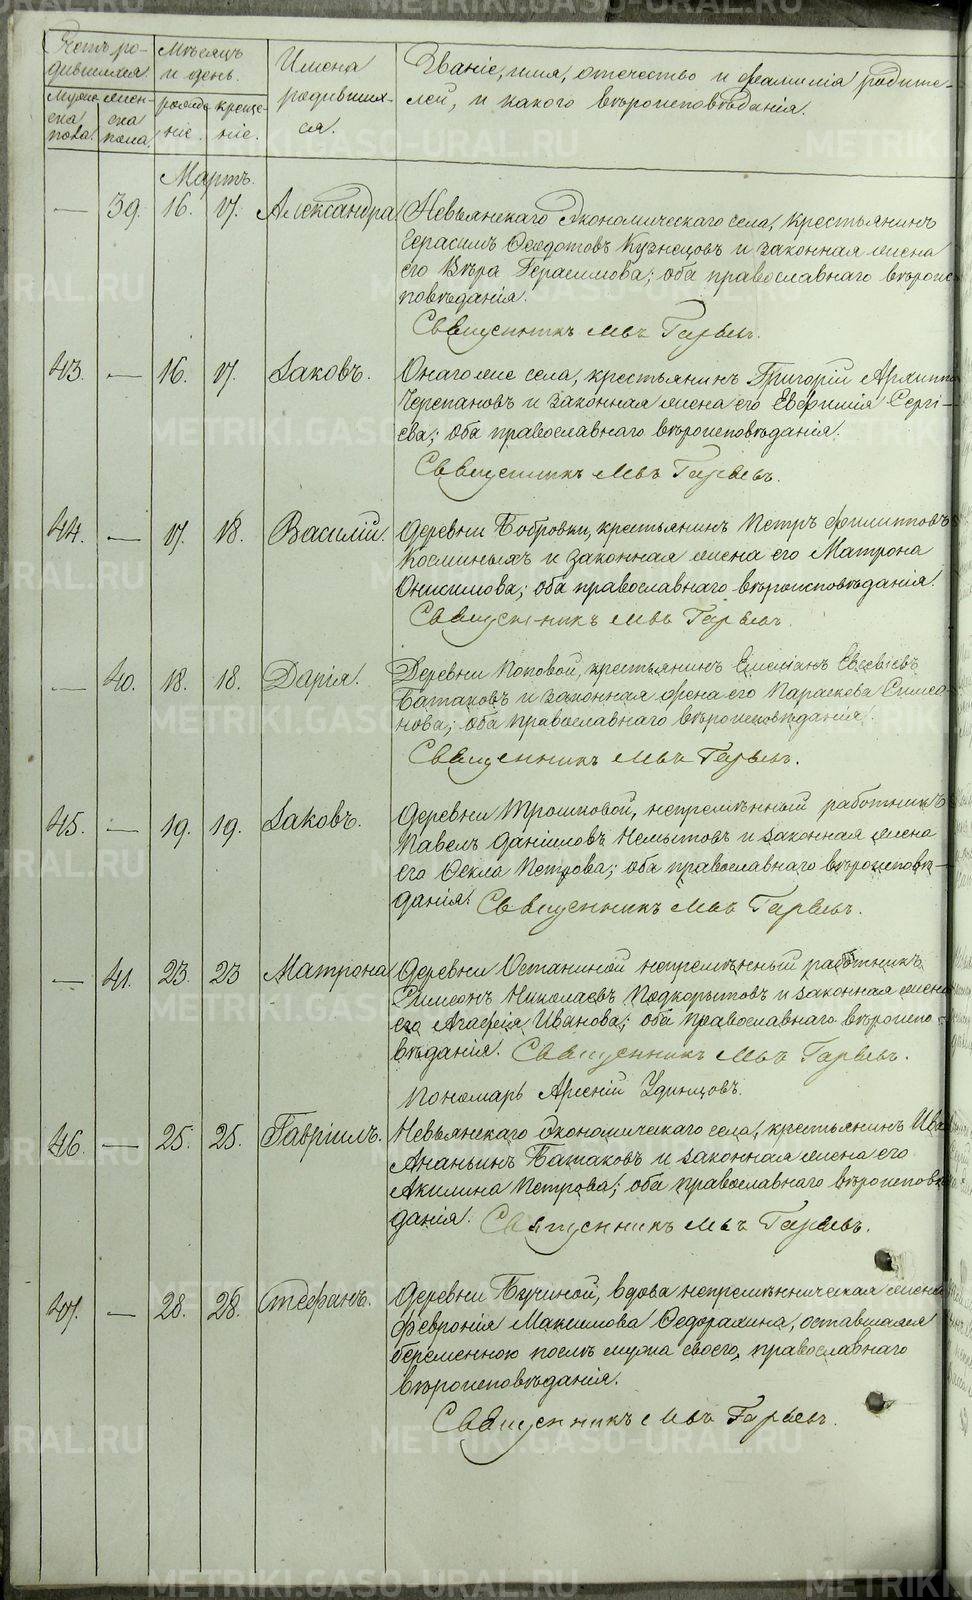 Счетъ ро-
дившихся.
Мужес-
ка
пола.
Жен-
ска
пола.
Мѣсяцъ
и день.
рожде-
ніе.
креще-
ніе.
Имена
родивших-
ся.
Званіе, имя, отчество и фамилія родите-
лей, и какого вѣроисповѣданія.
Мартъ.
— 39. 16. 17. Александра
Невьянскаго Экономическаго села, крестьянинъ
Герасимъ Ѳедотовъ Кузнецовъ и законная жена
его Вѣра Герасимова; оба православнаго вѣроис-
повѣданія.
Священникъ
43. — 16. 17. Іаковъ.
Онаго же села, крестьянинъ Григорій Архипп
Черепановъ и законная жена его Евфимія Сергі-
ева; оба православнаго вѣроисповѣданія.
Священникъ
44. — 17. 18. Василій.
Деревни Бобровки, крестьянинъ Петръ Филипповъ
Косминыхъ и законная жена его Матрона
Онисимова; оба православнаго вѣроисповѣданія.
Священникъ
— 40. 18. 18. Дарія.
Деревни Поповой, крестьянинъ Емеліанъ Евсевіевъ
Батаковъ и законная жена его Параскева Симео-
нова; оба православнаго вѣроисповѣданія.
Священникъ
45. — 19. 19. Іаковъ.
Деревни Трошковой, непремѣнный работникъ
Павелъ Даніиловъ Немытовъ и законная жена
его Ѳекла Петрова; оба православнаго вѣроисповѣ-
данія. Священникъ
— 41. 23. 23 Матрона
Деревни Останиной непремѣнный работникъ
Симеонъ Николаевъ Подкорытовъ и законная жена
его Агафія Иванова; оба православнаго вѣроиспо-
вѣданія. Священникъ
Пономарь Арсеній Удинцовъ.
46. — 25. 25. Гавріилъ.
Невьянскаго Экономическаго села, крестьянинъ Ива
Ананьинъ Батаковъ и законная жена его
Акилина Петрова; оба православнаго вѣроисповѣ
данія. Священникъ
47. — 28. 28. Стефанъ.
Деревни Бучиной, вдова непремѣнническая жена
Февронія Максимова Ѳедорахина, оставшаяся
беременною послѣ мужа своего, православнаго
вѣроисповѣданія.
Священникъ
METRIKI.GASO-URAL.RU